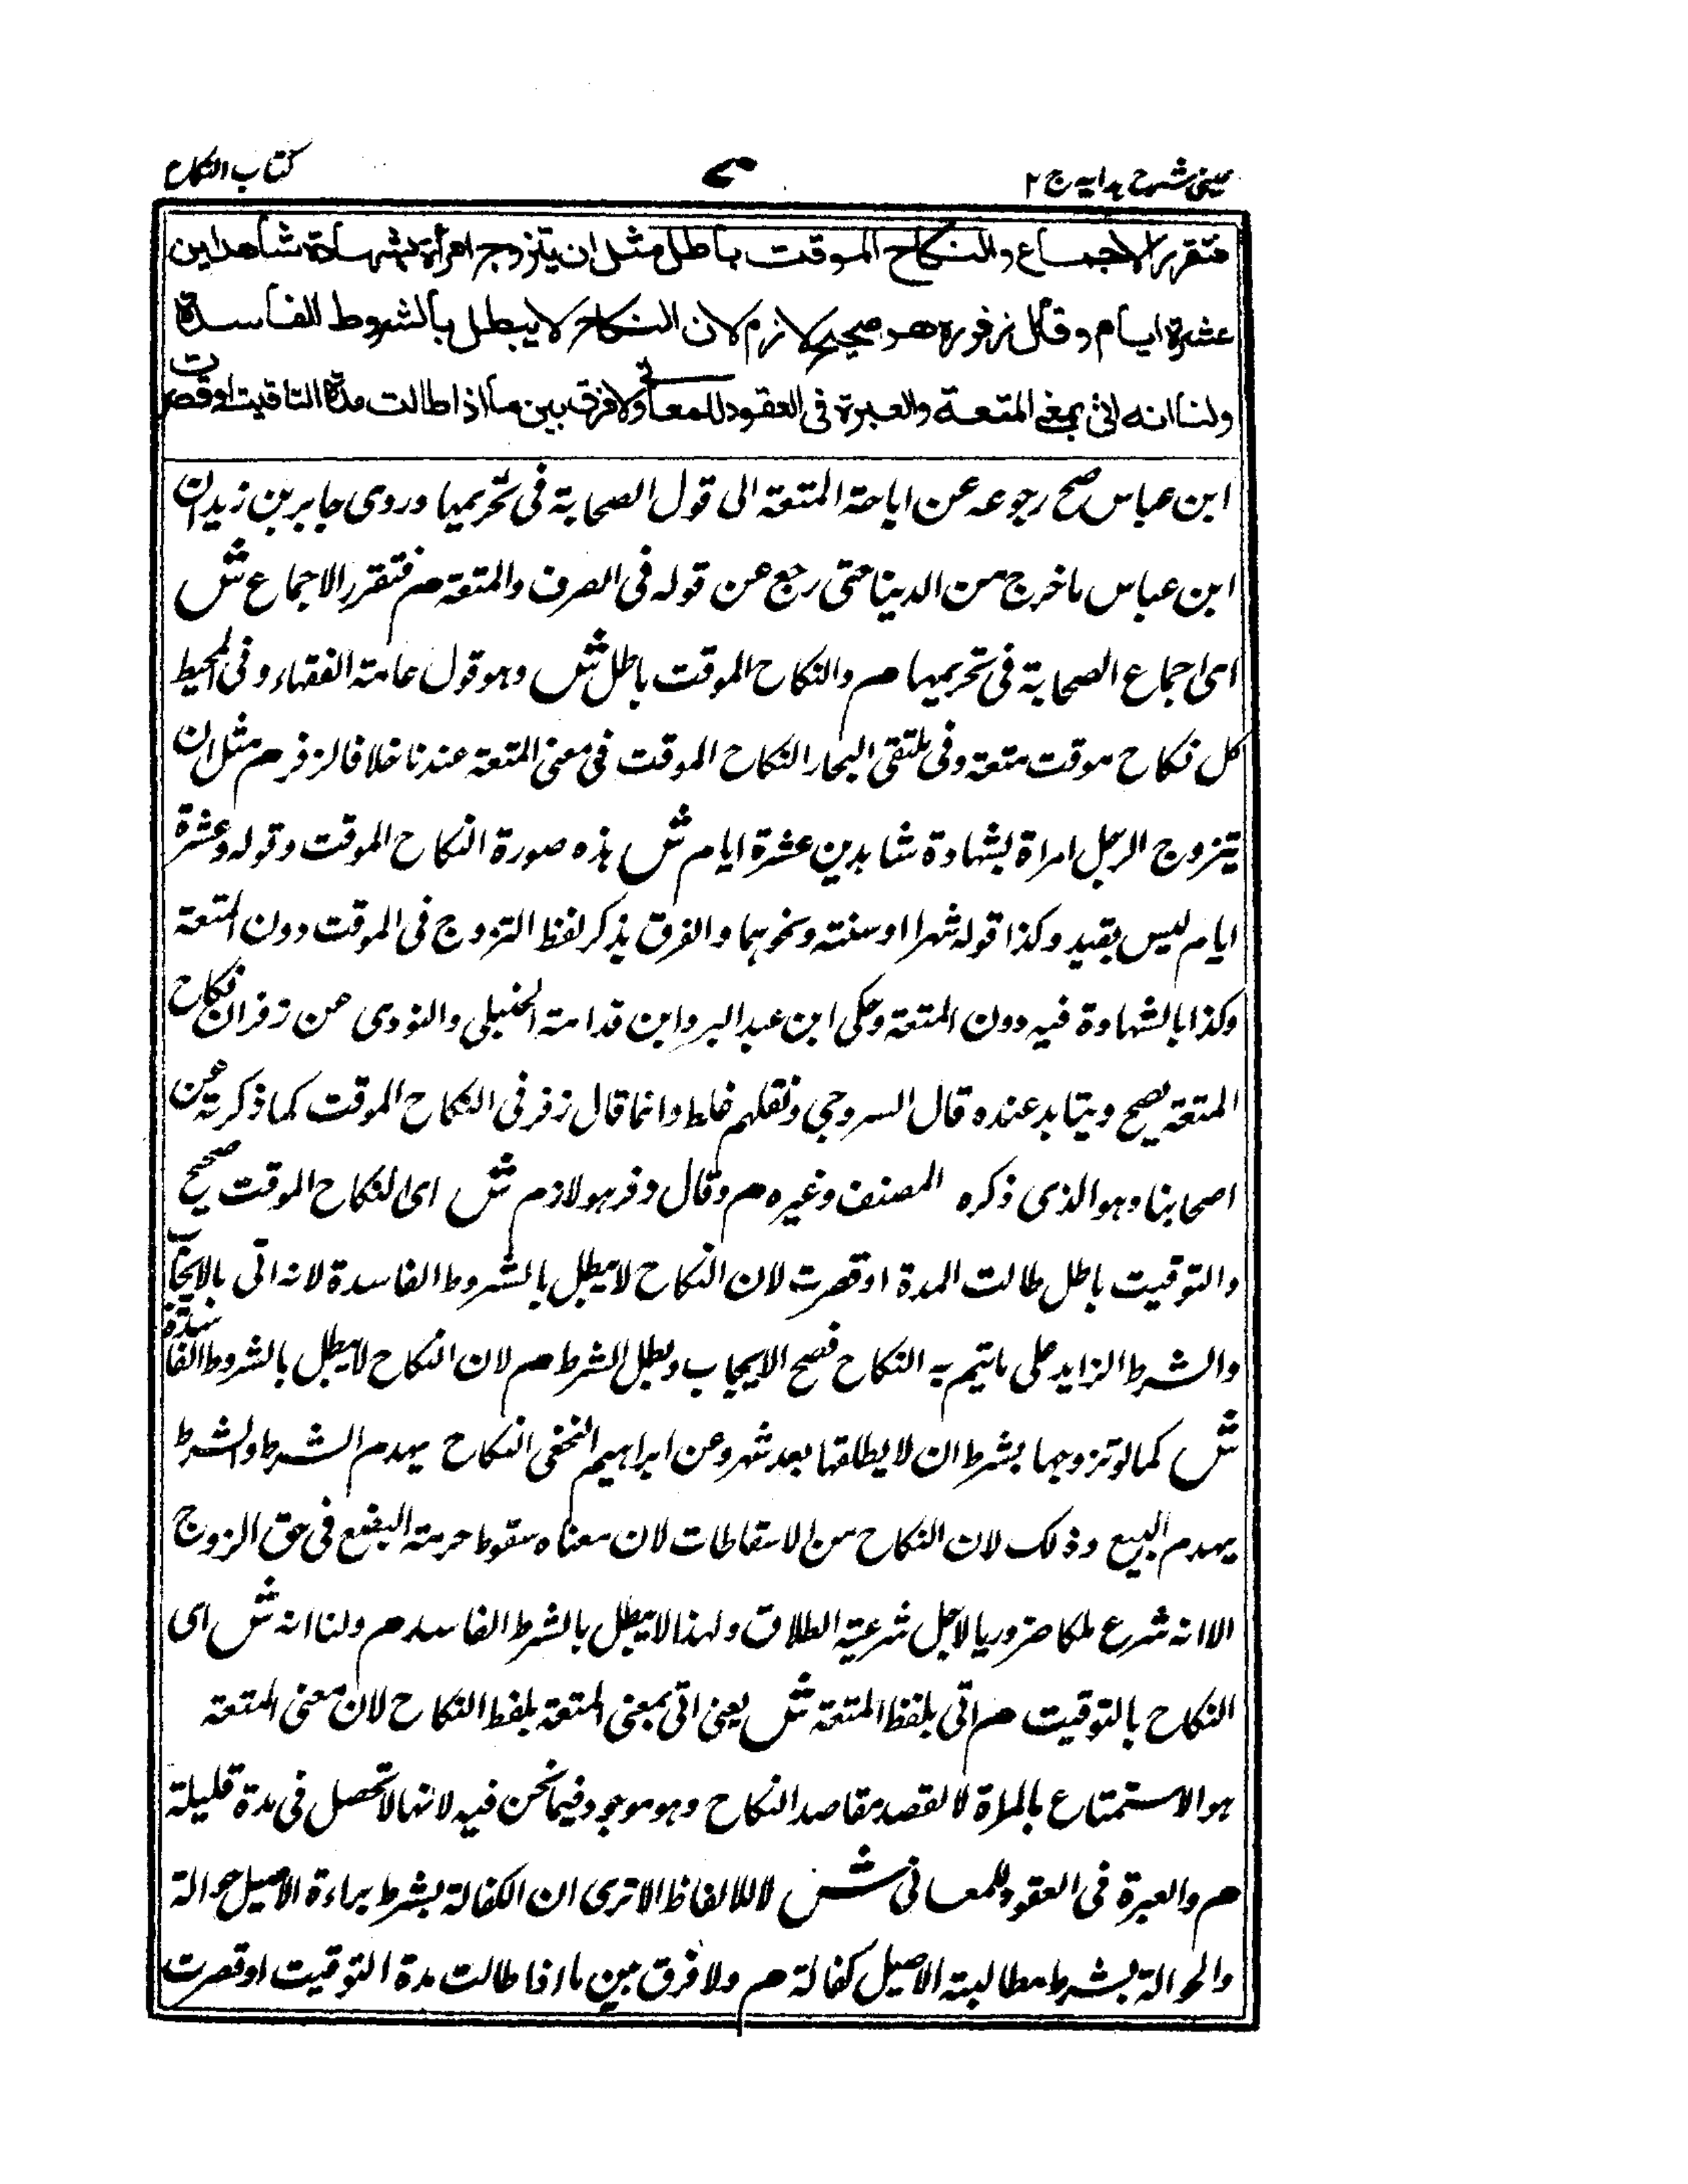 عینی شرح ہدایہ ج ۲
کتاب النکاح
فتقرر الاجماع والنكاح الموقت باطل مثل ان يتزوج امرأة بشهادة شاهدين
عشرة ايام وقال زفر هو صحيح لازم لان النكاح لا يبطل بالشروط الفاسدة
ولنا انه اتى بمعنى المتعة والعبرة فى العقود للمعانى ولا فرق بين ما اذا طالت مدة التاقيت اوقصرت
ابن عباس صح رجوعه عن اباحة المتعة الى قول الصحابة فى تحريمها وروى جابر بن زيد ان
ابن عباس ما خرج من الدينا حتى رجع عن قوله فى الصرف والمتعة م فتقرر الاجماع ش
اى اجماع الصحابة فى تحريمها م والنكاح الموقت باطل ش وهو قول عامة الفقهاء وفى المحيط
كل نكاح موقت متعة وفى ملتقى البحار النكاح الموقت فى معنى المتعة عندنا خلافا لزفر م مثل ان
يتزوج الرجل امراة بشهادة شاهدين عشرة ايام ش هذه صورة النكاح الموقت وقوله وعشرة
ايام ليس بقيد وكذا قوله شهرا او سنة ونحوهما والفرق يذكر لفظ التزوج فى الموقت دون المتعة
وكذا بالشهادة فيه دون المتعة وحكى ابن عبد البر وابن قدامة الحنبلى والنووى عن زفر ان نكاح
المتعة يصح ويتابد عنده قال السروجى ونقلهم غلط وانما قال زفر فى النكاح الموقت كما ذكرته عن
اصحابنا وهو الذى ذكره المصنف وغيره م وقال زفر هو لازم ش اى النكاح الموقت صحيح
والتوقيت باطل طالت المدة او قصرت لان النكاح لا يبطل بالشروط الفاسدة لانه اتى بالايجاب
والشرط الزايد على ما يتم به النكاح فصح الايجاب وبطل الشرط م لان النكاح لا يبطل بالشروط الفاسدة
ش كما لو تزوجها بشرط ان لا يطلقها بعد شهر وعن ابراهيم النخعى النكاح يهدم الشرط والشرط
يهدم البيع وذلك لان النكاح من الاسقاطات لان معناه سقوط حرمة البضع فى حق الزوج
الا انه شرع ملكا ضروريا لاجل شرعية الطلاق ولهذا لا يبطل بالشرط الفاسد م ولنا انه ش اى
النكاح بالتوقيت م اتى بلفظ المتعة ش يعنى اتى بمعنى المتعة بلفظ النكاح لان معنى المتعة
هو الاستمتاع بالمراة لا لقصد مقاصد النكاح وهو موجود فيما نحن فيه لانها لا تحصل فى مدة قليلة
م والعبرة فى العقود للمعانى ش لا للالفاظ الا ترى ان الكفالة بشرط براءة الاصيل حوالة
والحوالة بشرط مطالبة الاصيل كفالة م ولا فرق بين ما اذا طالت مدة التوقيت او قصرت